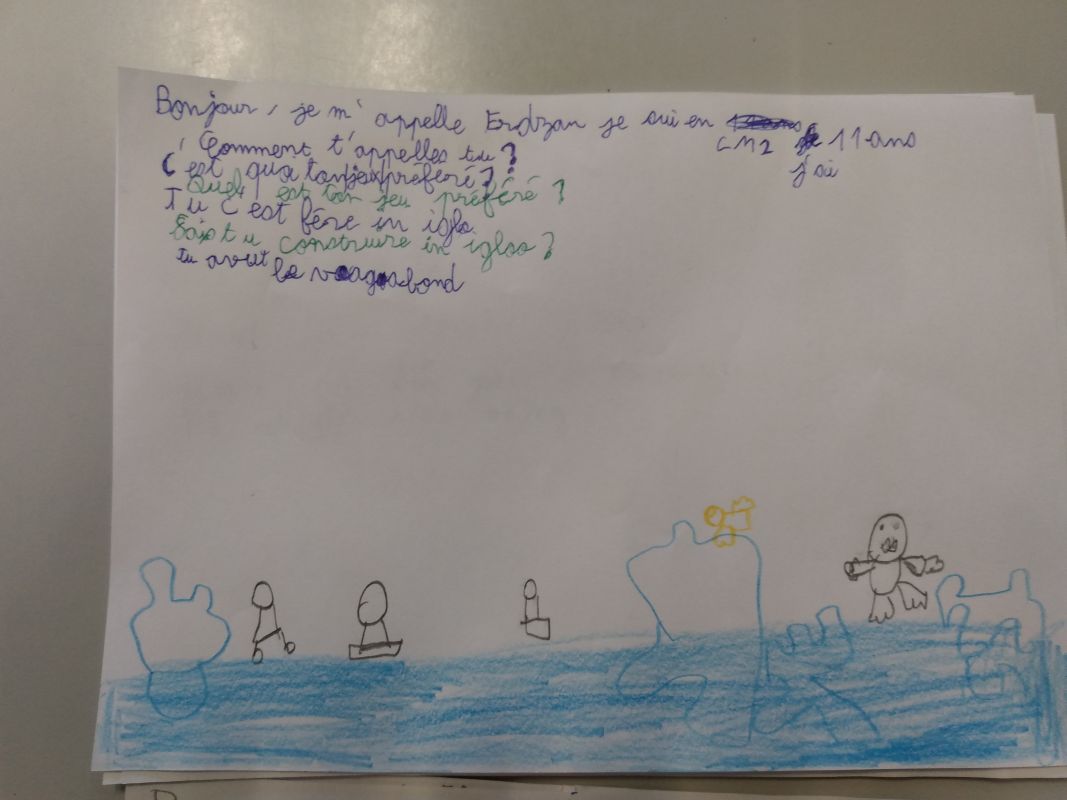 Bonjour, je m'appelle Erdzan je sui en
CM2 11 ans
j'ai
Comment t'appelles tu ?
C'est quoi ton jeu préferé ?
Quel est ton jeu préféré ?
Tu c'est fére in iglo
Sais tu construire in igloo ?
tu avut le vagabond